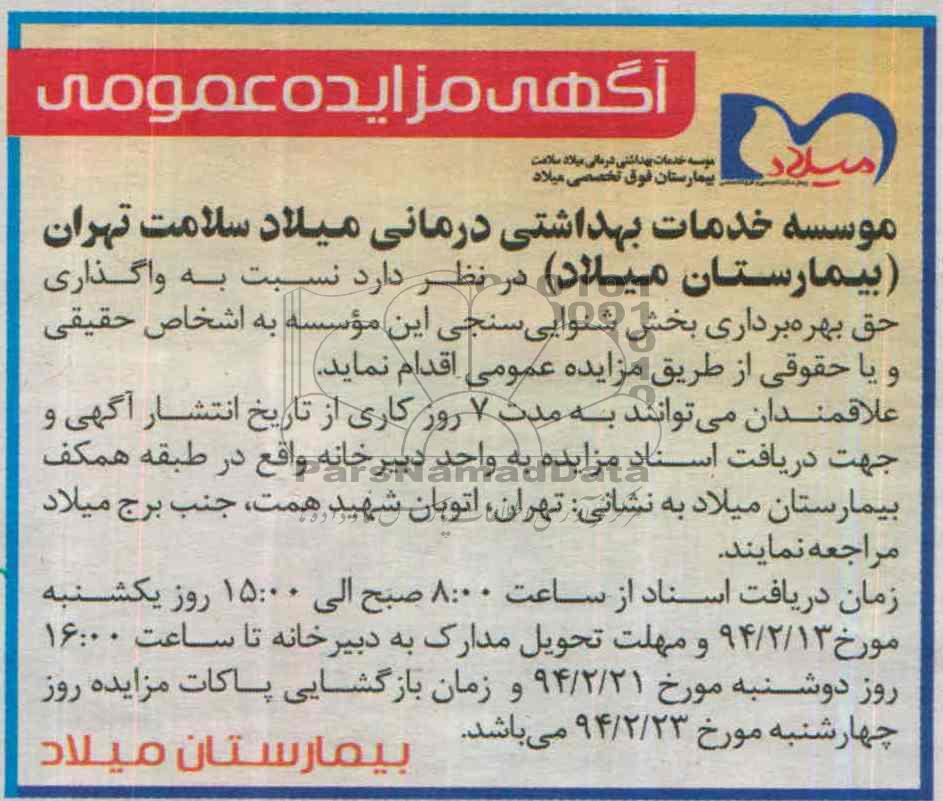 آگهی مزایده عمومی
میلاد
موسسه خدمات بهداشتی درمانی میلاد سلامت
بیمارستان فوق تخصصی میلاد
موسسه خدمات بهداشتی درمانی میلاد سلامت تهران
(بیمارستان میلاد) در نظر دارد نسبت به واگذاری
حق بهره‌برداری بخش شنوایی‌سنجی این مؤسسه به اشخاص حقیقی
و یا حقوقی از طریق مزایده عمومی اقدام نماید.
علاقمندان می‌توانند به مدت ۷ روز کاری از تاریخ انتشار آگهی و
جهت دریافت اسناد مزایده به واحد دبیرخانه واقع در طبقه همکف
ParsNamadData
بیمارستان میلاد به نشانی: تهران، اتوبان شهید همت، جنب برج میلاد
مراجعه نمایند.
زمان دریافت اسناد از ساعت ۸:۰۰ صبح الی ۱۵:۰۰ روز یکشنبه
مورخ ۹۴/۲/۱۳ و مهلت تحویل مدارک به دبیرخانه تا ساعت ۱۶:۰۰
روز دوشنبه مورخ ۹۴/۲/۲۱ و زمان بازگشایی پاکات مزایده روز
چهارشنبه مورخ ۹۴/۲/۲۳ می‌باشد.
بیمارستان میلاد